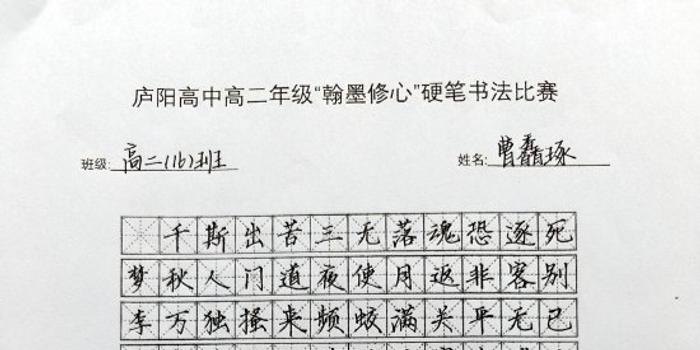 庐阳高中高二年级“翰墨修心”硬笔书法比赛
班级: 高二(16)班 姓名: 曹琢
千斯出苦三无落魂恐逐死
梦秋人门道夜使月返非客别
李万独搔来频蛟满关平无已